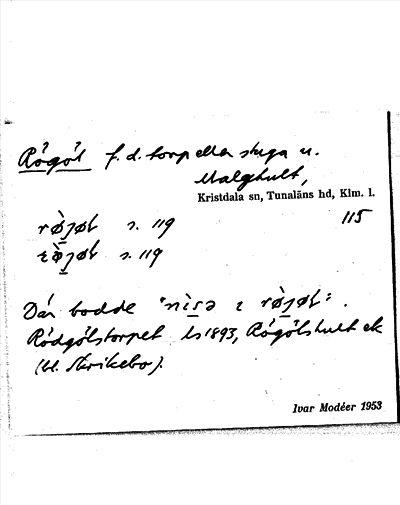 Rögöl f. d. torp eller stuga u.
Malghult,
Kristdala sn, Tunaläns hd, Klm. l.
115
s. 119
s. 119
Där bodde
Rödgölstorpet ls 1893, Rögölshult ek
(bl. Skrikebo).
Ivar Modéer 1953